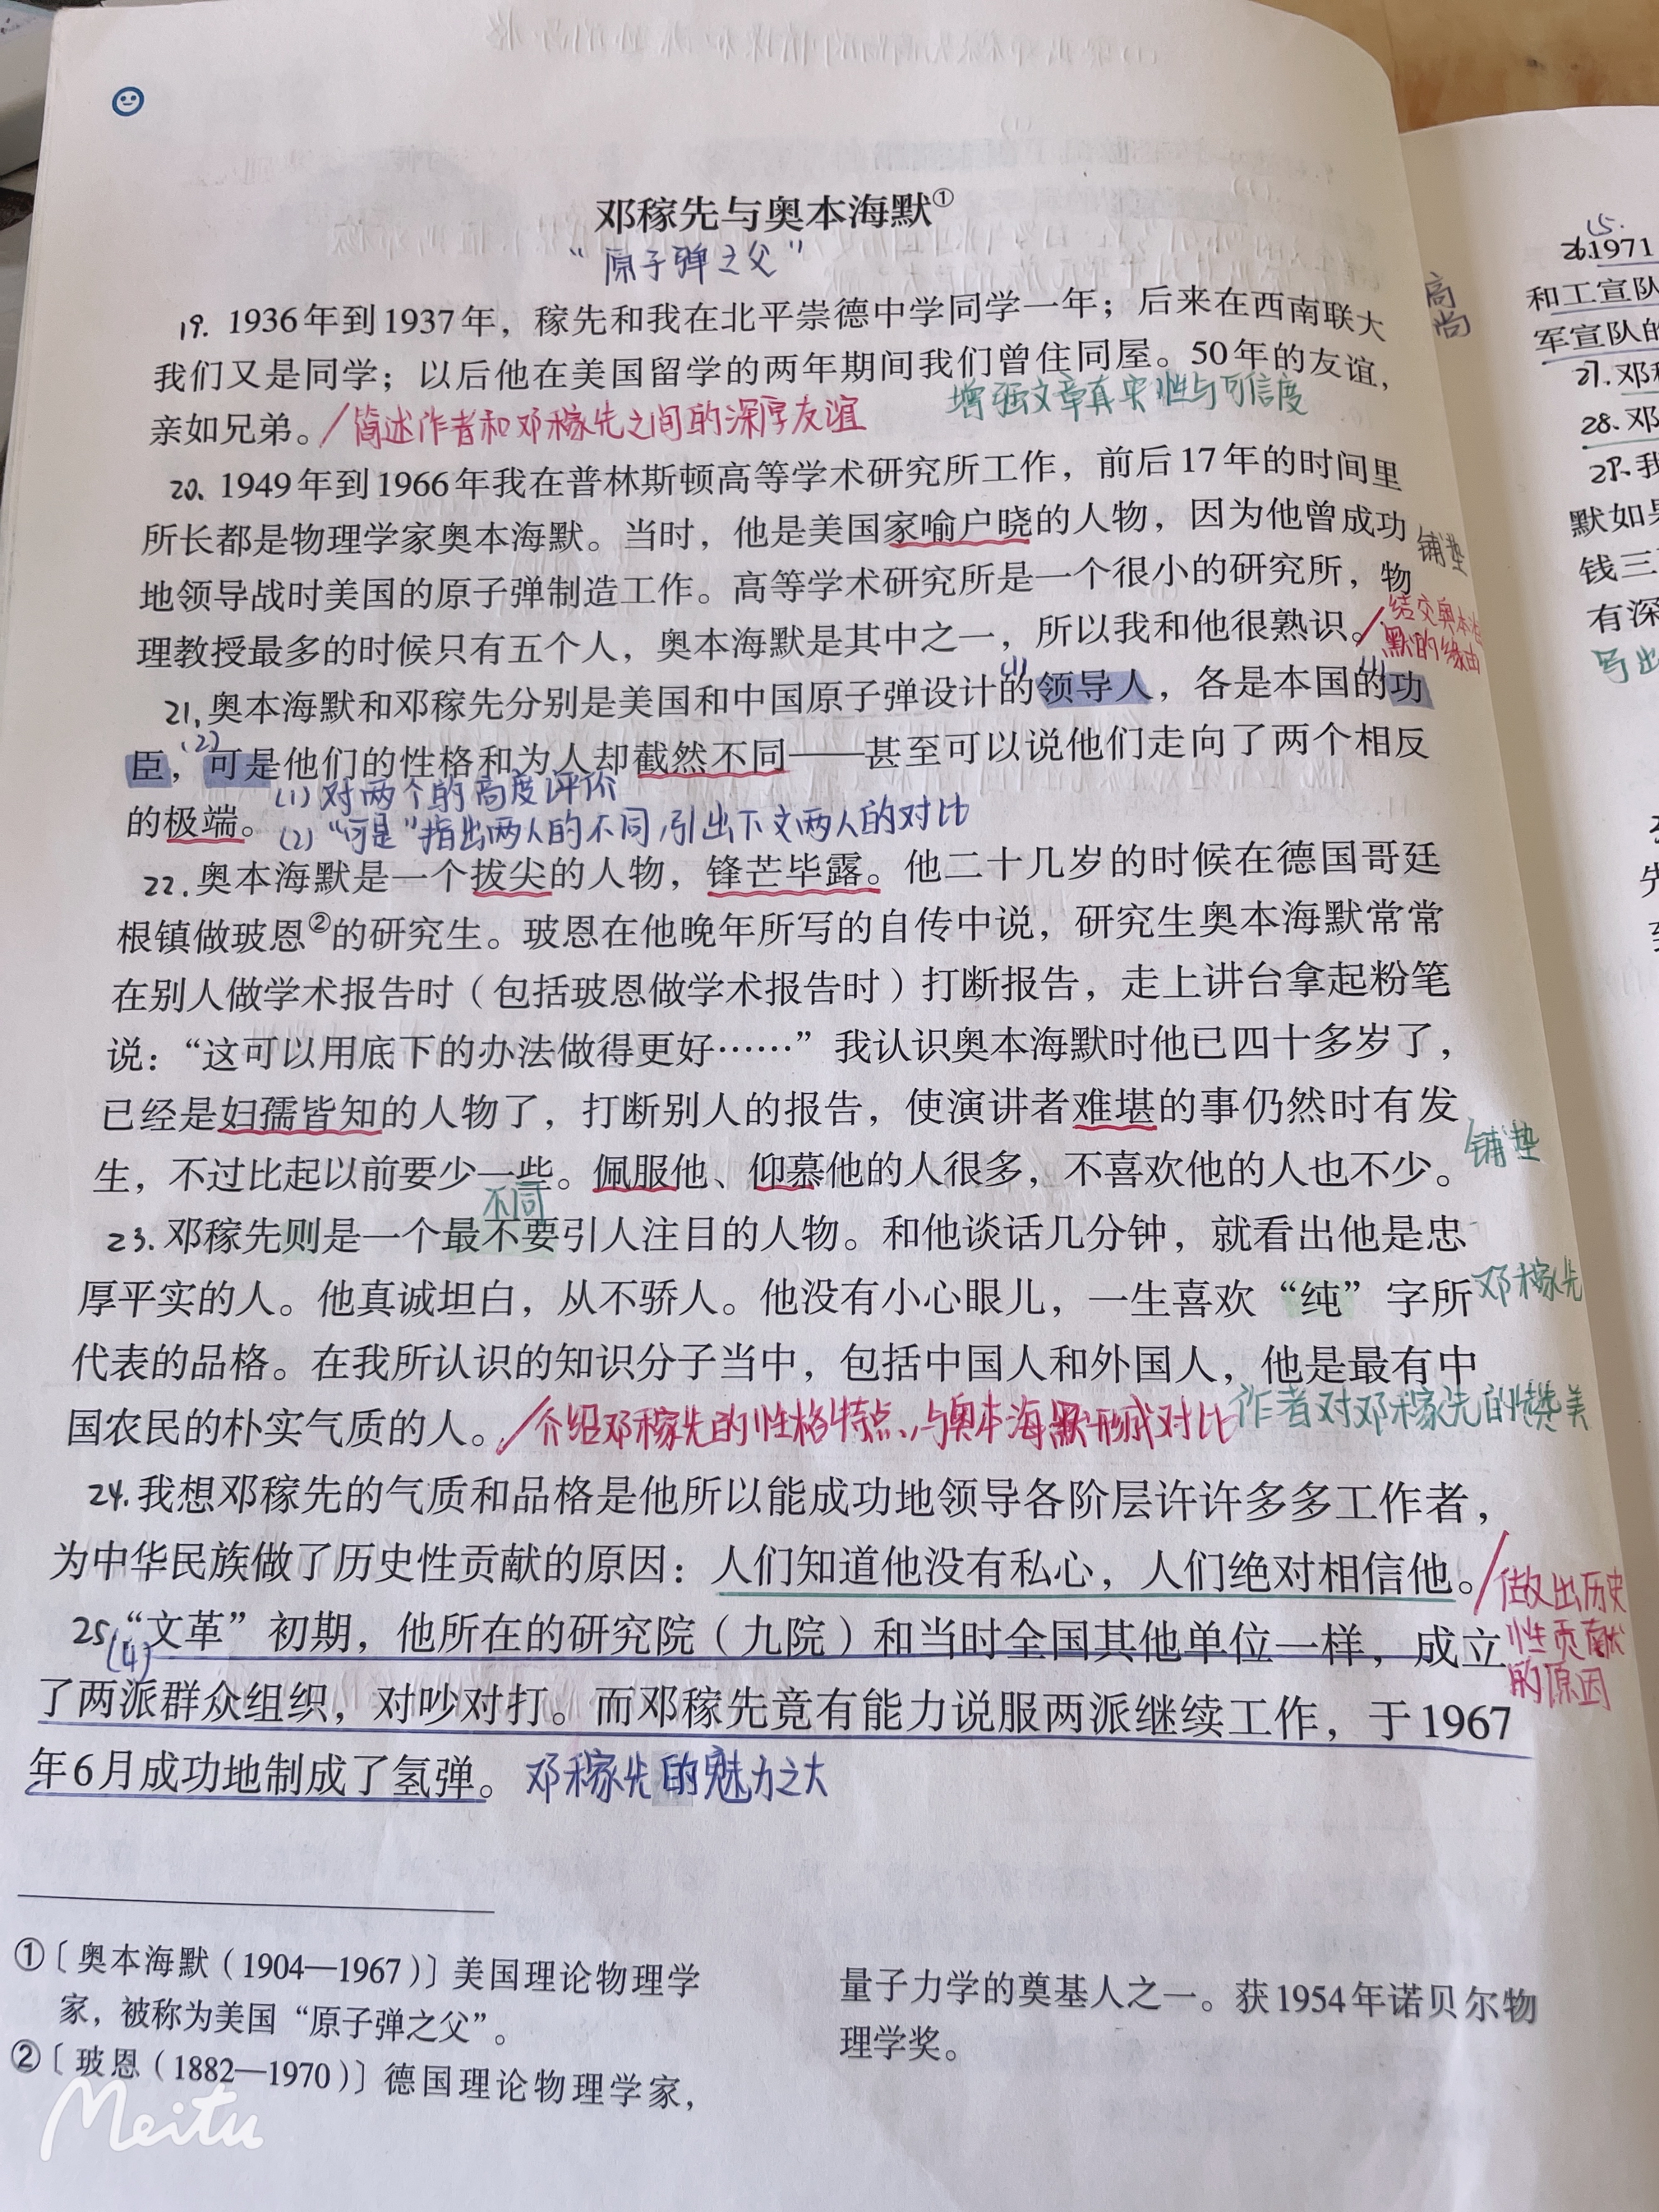 邓稼先与奥本海默①
“原子弹之父”
19. 1936年到1937年，稼先和我在北平崇德中学同学一年；后来在西南联大
我们又是同学；以后他在美国留学的两年期间我们曾住同屋。50年的友谊，
增强文章真实性与可信度
亲如兄弟。/简述作者和邓稼先之间的深厚友谊
20. 1949年到1966年我在普林斯顿高等学术研究所工作，前后17年的时间里
所长都是物理学家奥本海默。当时，他是美国家喻户晓的人物，因为他曾成功
铺垫
地领导战时美国的原子弹制造工作。高等学术研究所是一个很小的研究所，物
理教授最多的时候只有五个人，奥本海默是其中之一，所以我和他很熟识。/
结交奥本海
默的缘由
(1)
(1)
21. 奥本海默和邓稼先分别是美国和中国原子弹设计的领导人，各是本国的功
(2)
臣，可是他们的性格和为人却截然不同——甚至可以说他们走向了两个相反
(1) 对两个的高度评价
的极端。(2) “可是”指出两人的不同，引出下文两人的对比
22. 奥本海默是一个拔尖的人物，锋芒毕露。他二十几岁的时候在德国哥廷
根镇做玻恩②的研究生。玻恩在他晚年所写的自传中说，研究生奥本海默常常
在别人做学术报告时（包括玻恩做学术报告时）打断报告，走上讲台拿起粉笔
说：“这可以用底下的办法做得更好……”我认识奥本海默时他已四十多岁了，
已经是妇孺皆知的人物了，打断别人的报告，使演讲者难堪的事仍然时有发
生，不过比起以前要少一些。佩服他、仰慕他的人很多，不喜欢他的人也不少。
铺垫
不同
23. 邓稼先则是一个最不要引人注目的人物。和他谈话几分钟，就看出他是忠
厚平实的人。他真诚坦白，从不骄人。他没有小心眼儿，一生喜欢“纯”字所
邓稼先
代表的品格。在我所认识的知识分子当中，包括中国人和外国人，他是最有中
国农民的朴实气质的人。/介绍邓稼先的性格特点、与奥本海默形成对比
作者对邓稼先的赞美
24. 我想邓稼先的气质和品格是他所以能成功地领导各阶层许许多多工作者，
为中华民族做了历史性贡献的原因：人们知道他没有私心，人们绝对相信他。/
做出历史
性贡献
的原因
25. “文革”初期，他所在的研究院（九院）和当时全国其他单位一样，成立
(4)
了两派群众组织，对吵对打。而邓稼先竟有能力说服两派继续工作，于1967
年6月成功地制成了氢弹。邓稼先的魅力之大
①〔奥本海默（1904—1967）〕美国理论物理学
家，被称为美国“原子弹之父”。
②〔玻恩（1882—1970）〕德国理论物理学家，
量子力学的奠基人之一。获1954年诺贝尔物
理学奖。
高
尚
15.
26. 1971
和工宣队
军宣队的
27. 邓稼
28. 邓
29. 我
默如果
钱三
有深
写出
Meitu